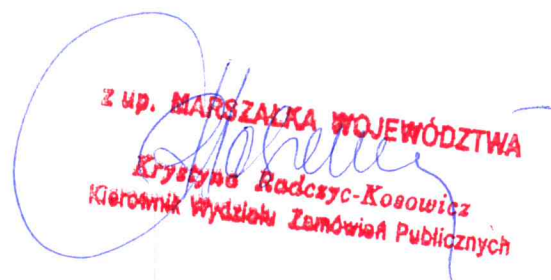 z up. MARSZAŁKA WOJEWÓDZTWA
Krystyna Radczyc-Kosowicz
Kierownik Wydziału Zamówień Publicznych